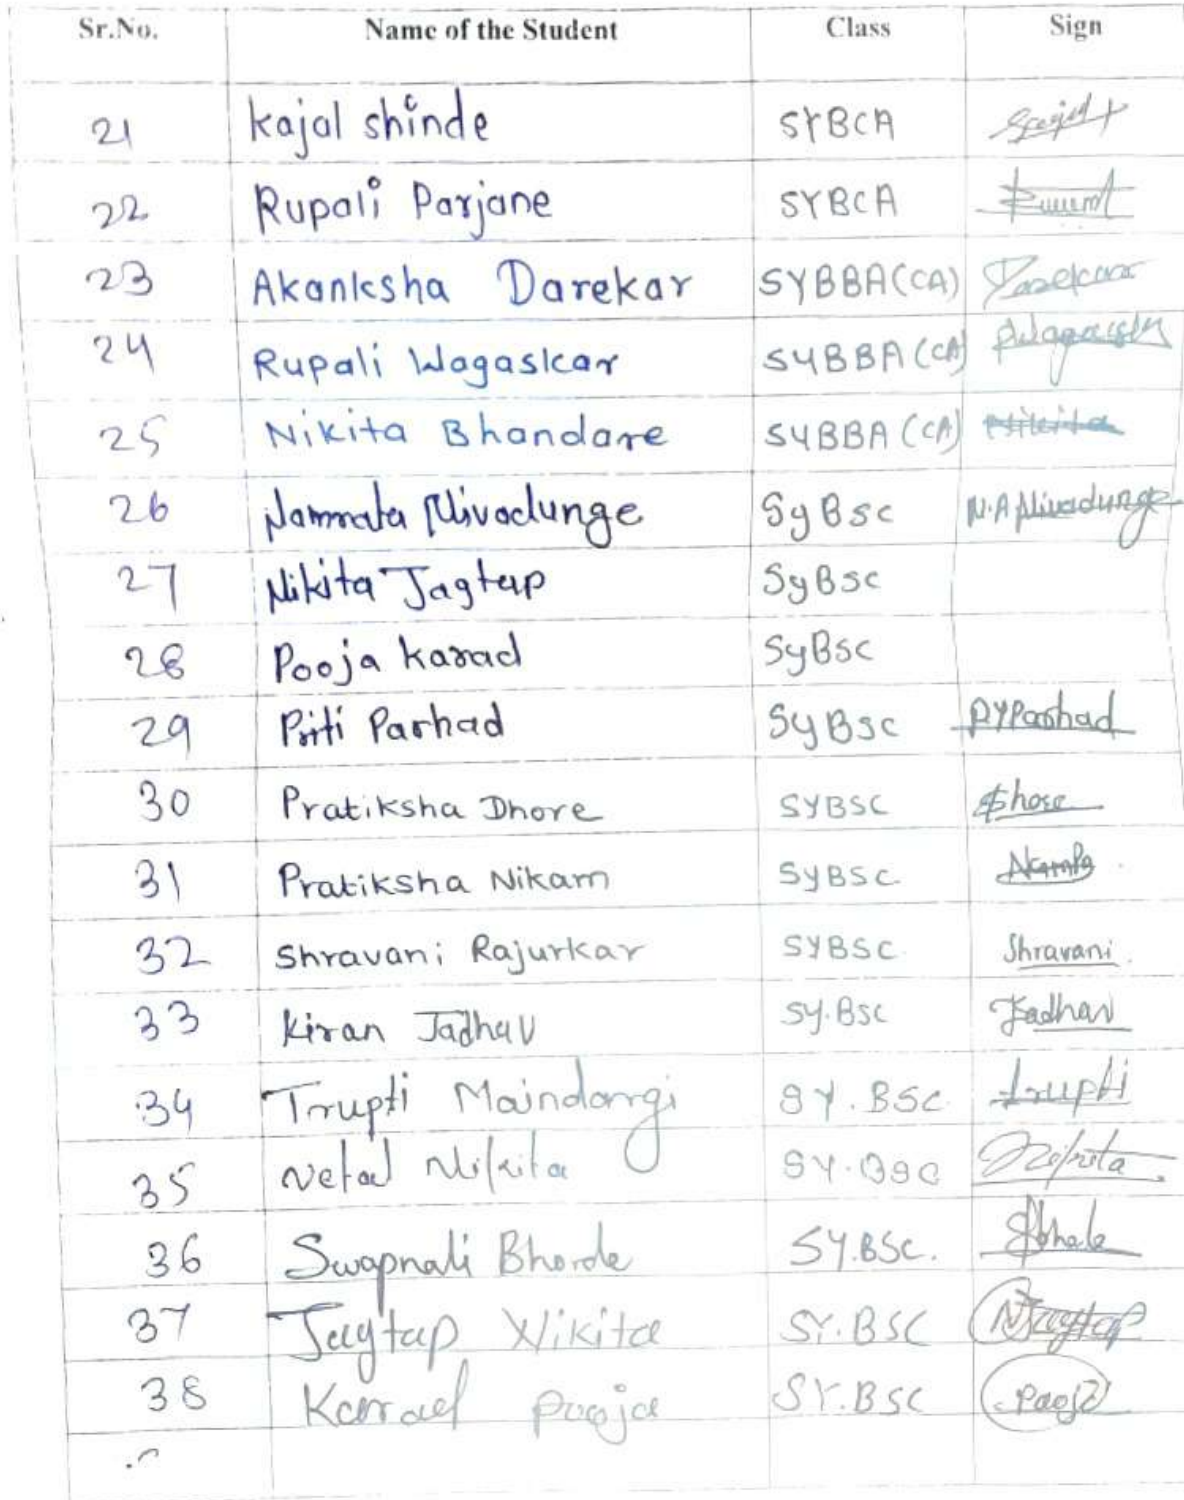 Sr.No. Name of the Student Class Sign
21 Kajal shinde SYBCA
22 Rupali Parjane SYBCA
23 Akanksha Darekar SYBBA(CA) Darekar
24 Rupali Wagaskar SYBBA(CA)
25 Nikita Bhandare SYBBA(CA) Nikita
26 Namrata Nivadunge SyBsc N.A Nivadunge
27 Nikita Jagtap SyBsc
28 Pooja Karad SyBsc
29 Priti Parhad SyBsc P.Y.Parhad
30 Pratiksha Dhore SYBSC
31 Pratiksha Nikam SYBSC
32 Shravani Rajurkar SYBSC Shravani
33 Kiran Jadhav SY.BSC Jadhav
34 Trupti Maindargi SY.BSC trupti
35 Netal Nikita SY.BSC Nikita
36 Swapnali Bhorde SY.BSC.
37 Jagtap Nikita SY.BSC NJagtap
38 Karad pooja SY.BSC Pooja